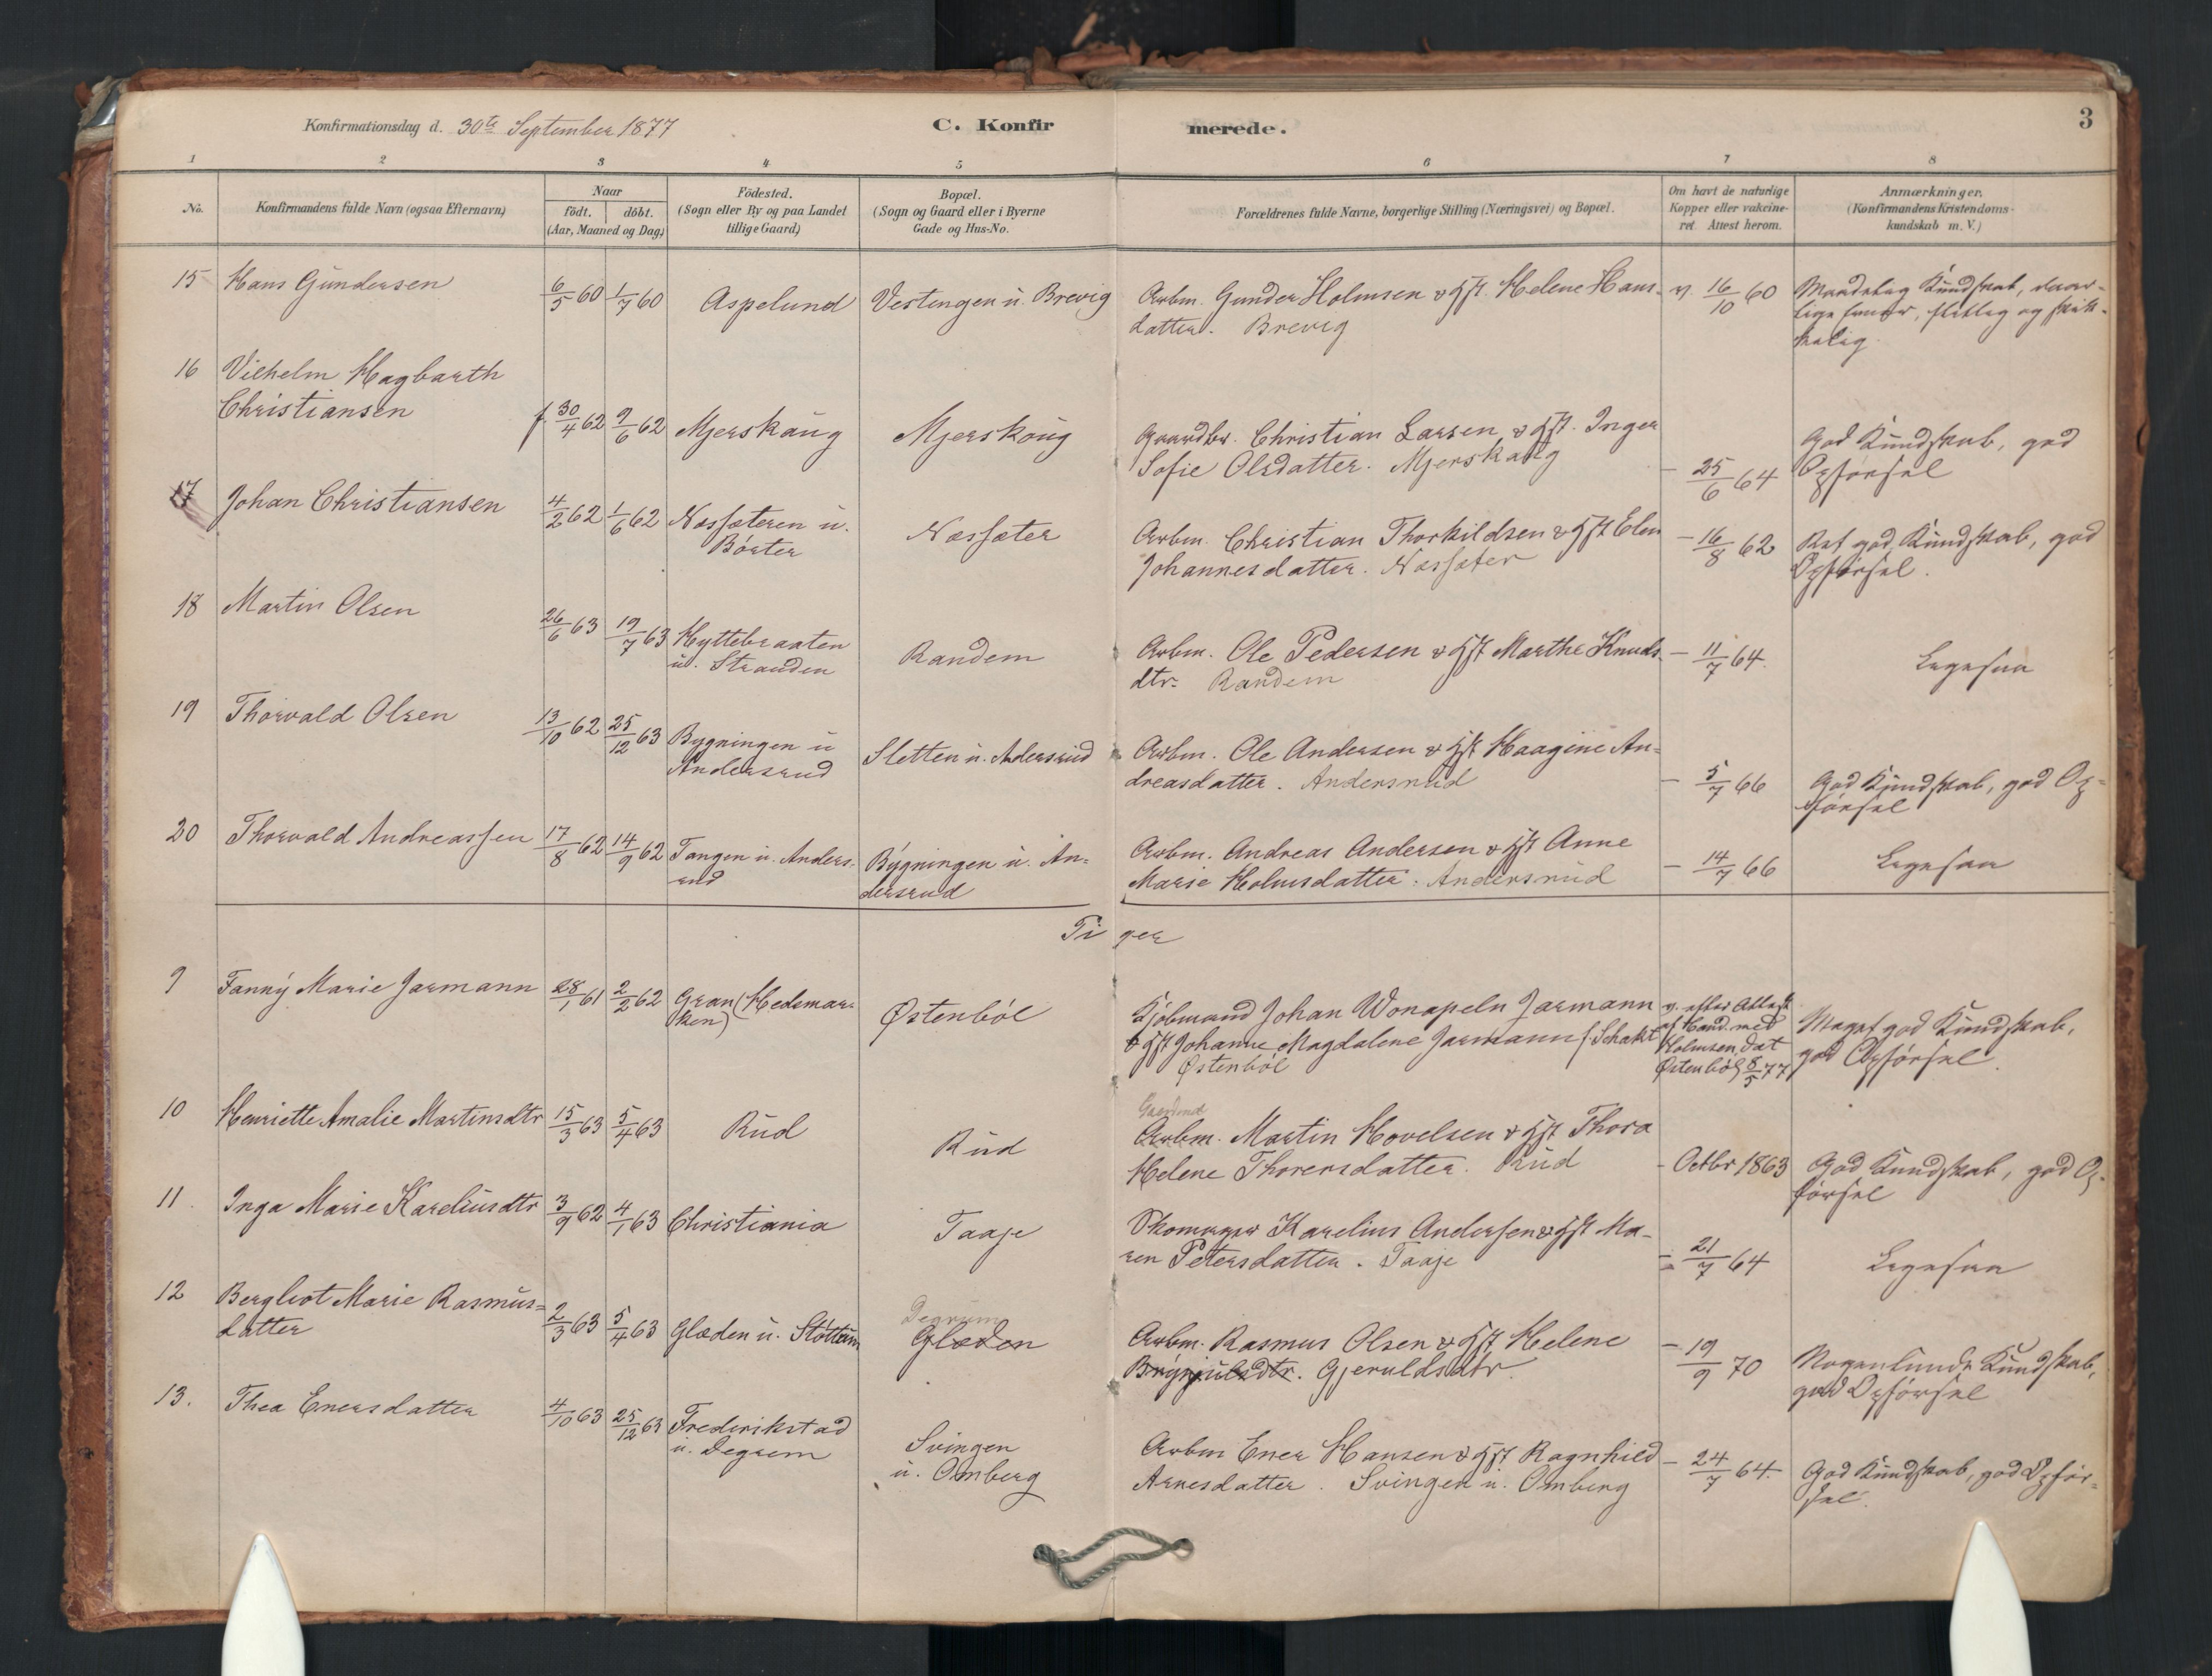 Konfirmationsdag d. 30te September 1877
C. Konfirmerede.
3
1 2 3 4 5 6 7 8
No.
Konfirmandens fulde Navn (ogsaa Efternavn)
Naar
födt. döbt.
(Aar, Maaned og Dag)
Födested.
(Sogn eller By og paa Landet
tillige Gaard)
Bopæl.
(Sogn og Gaard eller i Byerne
Gade og Hus-No.
Forældrenes fulde Navne, borgerlige Stilling (Næringsvei) og Bopæl.
Om havt de naturlige
Kopper eller vakcine-
ret. Attest herom.
Anmærkninger.
(Konfirmandens Kristendoms-
kundskab m. V.)
15 Hans Gundersen 6/5 60 1/7 60 Aspelund Vestengen u. Brevig Arbm. Gunder Holmsen & Hst. Helene Hans-
datter. Brevig
v. 16/10 60
Kundskab,
flittig og skik-
kelig
16 Vilhelm Hagbarth
Christiansen f. 30/4 62 9/6 62 Mjerskaug Mjerskoug Gaardbr. Christian Larsen & Hst. Inger
Sofie Olsdatter. Mjerskaug
- 25/6 64
God Kundskab, god
Opførsel
17 Johan Christiansen 4/2 62 1/6 62 Næssæteren u.
Børter
Næssæter
Arbm. Christian Thorkildsen & Hst Elen
Johannesdatter. Næssæter
- 16/8 62
Ret god Kundskab, god
Opførsel.
18 Martin Olsen 26/6 63 19/7 63 Hyttebraaten
u. Stranden
Randem
Arbm. Ole Pedersen & Hst Marthe Knuds-
dtr. Randem
- 11/7 64.
Ligesaa
19 Thorvald Olsen 13/10 62 25/12 63 Bygningen u
Andersrud
Sletten u. Andersrud
Arbm. Ole Andersen & Hst Haagine An=
dreasdatter. Andersrud
- 5/7 66
God Kundskab, god Op=
førsel
20 Thorvald Andreassen 17/8 62 14/9 62 Tangen u. Anders-
rud
Bygningen u. An=
dersrud
Arbm. Andreas Andersen & Hst Anne
Marie Holmsdatter. Andersrud
- 14/7 66
Ligesaa
Piger
9 Fanny Marie Jarmann 28/1 61 2/2 62 Gran (Hedemar-
ken)
Østenbøl
Kjøbmand Johan Jarmann
& Hst Johanne Magdalene Jarmann f.
Østenbøl
v. efter Attest
af
Holmsen, dat
Østenbøl 8/5 77
Meget god Kundskab,
god Opførsel.
10 Henriette Amalie Martinsdtr 15/3 63 5/4 63 Rud Rud
Arbm. Martin Hovelsen & Hst Thora
Helene Thorersdatter. Rud
- Octbr 1863
God Kundskab, god Op-
førsel
11. Inga Marie Kareliusdtr 3/9 62 4/1 63 Christiania Taaje
Skomager Karelius Andersen & Hst Ma-
ren Petersdatter. Taaje
- 21/7 64
Ligesaa
12 Bergliot Marie Rasmus=
datter
2/3 63 5/4 63 Glæden u. Støttum
Degrum
Glæden
Arbm. Rasmus Olsen & Hst Helene
Brynjulsdtr. Gjeruldsdtr.
- 19/9 70
Nogenlunde Kundskab,
god Opførsel
13. Thea Enersdatter 4/10 63 25/12 63 Frederikstad
u. Degrem
Svingen
u. Omberg
Arbm Ener Hansen & Hst Ragnhild
Arnesdatter. Svingen u. Omberg
- 24/7 64.
God Kundskab, god Opfør=
sel.